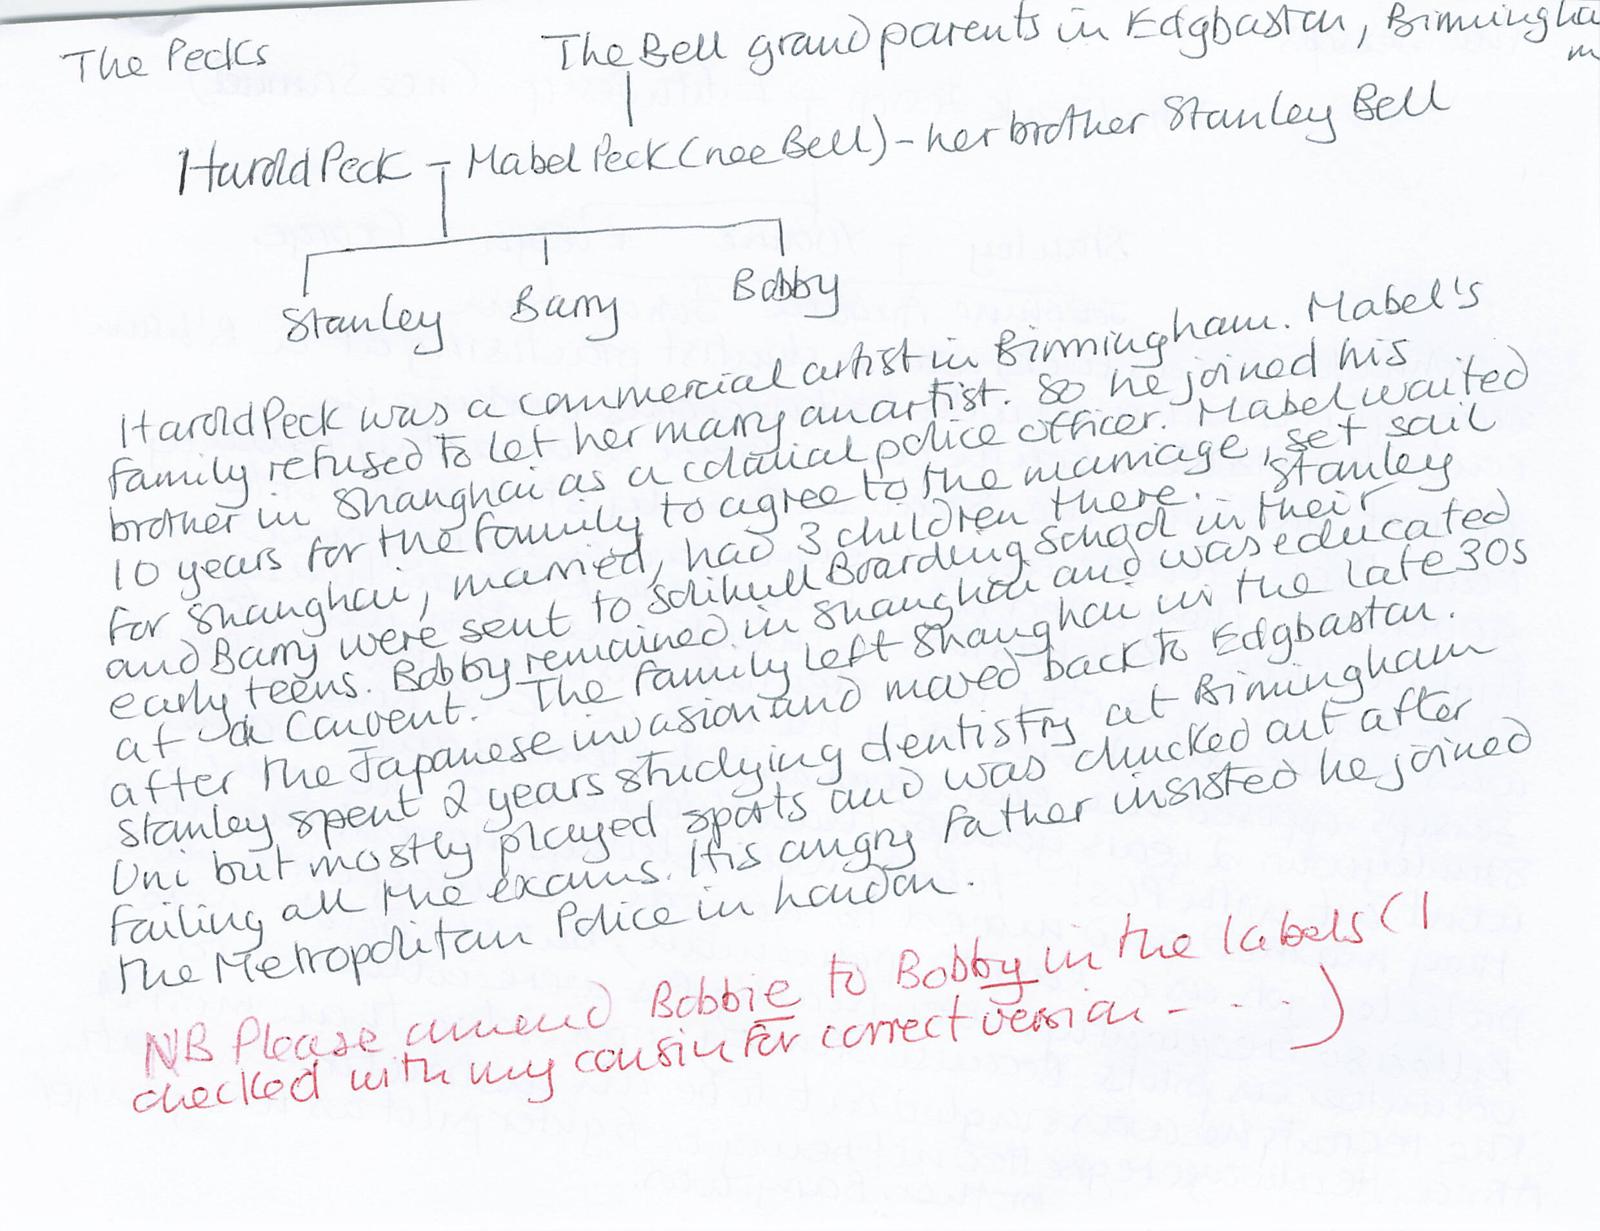 The Pecks
The Bell grandparents in Edgbaston, Birmingham
Harold Peck - Mabel Peck (nee Bell) - her brother Stanley Bell
Stanley Barry Bobby
Harold Peck was a commercial artist in Birmingham. Mabel's
family refused to let her marry an artist. So he joined his
brother in Shanghai as a colonial police officer. Mabel waited
10 years for the family to agree to the marriage, set sail
for Shanghai, married, had 3 children there. Stanley
and Barry were sent to Solihull Boarding School in their
early teens. Bobby remained in Shanghai and was educated
at a Convent. The family left Shanghai in the late 30s
after the Japanese invasion and moved back to Edgbaston.
Stanley spent 2 years studying dentistry at Birmingham
Uni but mostly played sports and was chucked out after
failing all the exams. His angry father insisted he joined
the Metropolitan Police in London.
NB Please amend Bobbie to Bobby in the labels (I
checked with my cousin for correct version - - - -)